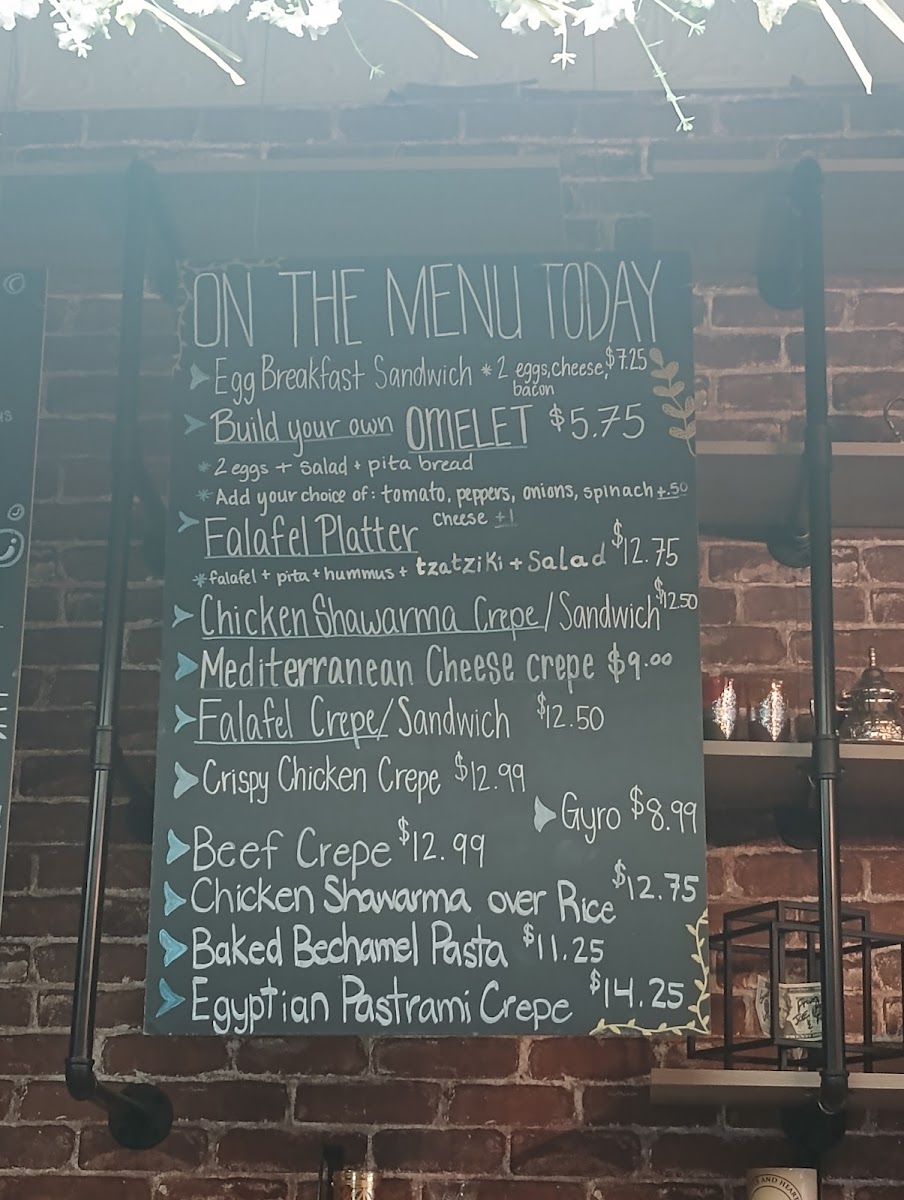 ON THE MENU TODAY
Egg Breakfast Sandwich * 2 eggs, cheese, $7.25
bacon
Build your own OMELET $5.75
* 2 eggs + salad + pita bread
* Add your choice of: tomato, peppers, onions, spinach +.50
cheese +1
Falafel Platter $12.75
* falafel + pita + hummus + tzatziki + Salad
Chicken Shawarma Crepe / Sandwich $12.50
Mediterranean Cheese crepe $9.00
Falafel Crepe / Sandwich $12.50
Crispy Chicken Crepe $12.99
Gyro $8.99
Beef Crepe $12.99
Chicken Shawarma over Rice $12.75
Baked Bechamel Pasta $11.25
Egyptian Pastrami Crepe $14.25